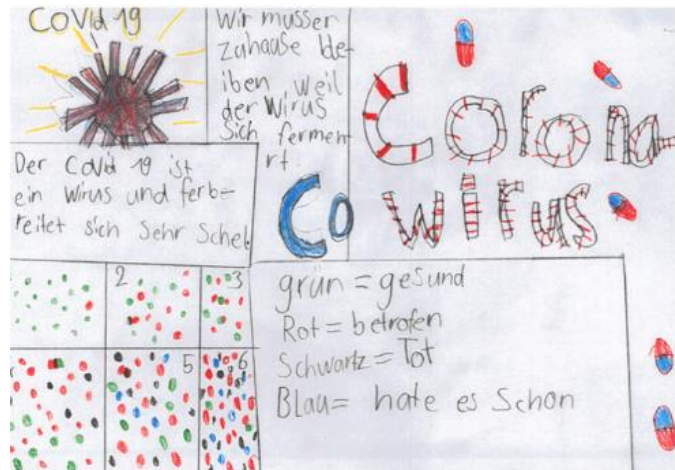 COVid 19
Wir müsser
zuhause ble-
iben, weil
der Wirus
sich fermer
rt.
Colona-
Co
wirus
Der COVid 19 ist
ein Wirus und ferb-
reitet sich sehr schel
2
3
5
6
grün = gesund
Rot = betrofen
Schwartz = Tot
BLau = hate es Schon